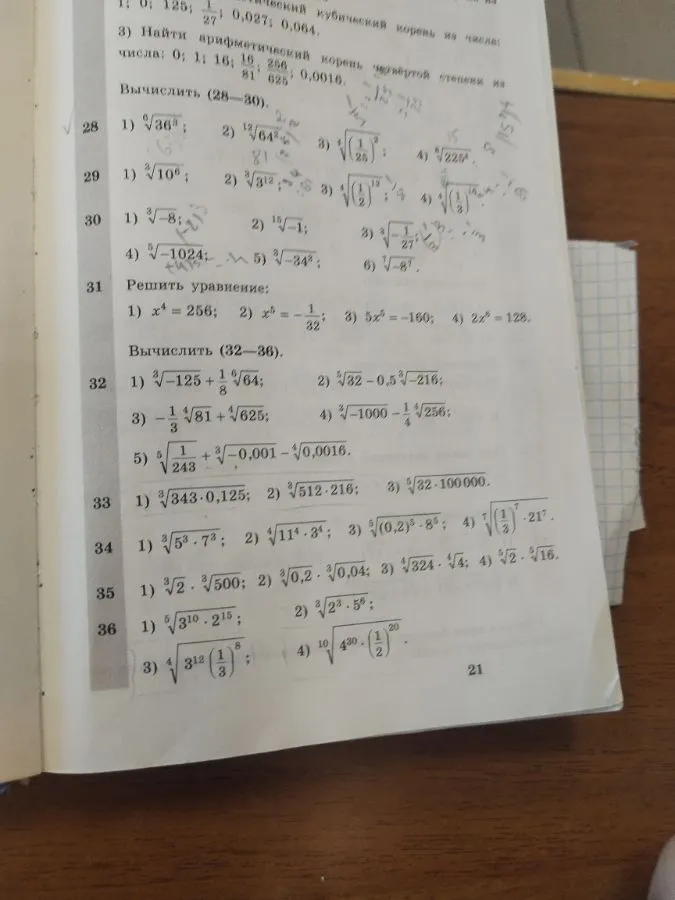 1; 0; 125; 1/27; 0,027; 0,064.
3) Найти арифметический корень четвёртой степени из
числа: 0; 1; 16; 16/81; 256/625; 0,0016.
Вычислить (28—30).
28 1) ⁶√(36³); 2) ¹²√(64²); 3) ⁴√((1/25)²); 4) ⁸√(225⁴).
29 1) ³√(10⁶); 2) ³√(3¹²); 3) ⁴√((1/2)¹²); 4) ⁴√((1/3)¹⁶).
30 1) ³√(−8); 2) ¹⁵√(−1); 3) ³√(−1/27);
4) ⁵√(−1024); 5) ³√(−34³); 6) ⁷√(−8⁷).
31 Решить уравнение:
1) x⁴ = 256; 2) x⁵ = −1/32; 3) 5x⁵ = −160; 4) 2x⁶ = 128.
Вычислить (32—36).
32 1) ³√(−125) + 1/8 ⁶√64; 2) ⁵√32 − 0,5 ³√(−216);
3) −1/3 ⁴√81 + ⁴√625; 4) ³√(−1000) − 1/4 ⁴√256;
5) ⁵√(1/243) + ³√(−0,001) − ⁴√(0,0016).
33 1) ³√(343 · 0,125); 2) ³√(512 · 216); 3) ⁵√(32 · 100 000).
34 1) ³√(5³ · 7³); 2) ⁴√(11⁴ · 3⁴); 3) ⁵√((0,2)⁵ · 8⁵); 4) ⁷√((1/3)⁷ · 21⁷).
35 1) ³√2 · ³√500; 2) ³√0,2 · ³√0,04; 3) ⁴√324 · ⁴√4; 4) ⁵√2 · ⁵√16.
36 1) ⁵√(3¹⁰ · 2¹⁵); 2) ³√(2³ · 5⁶);
3) ⁴√(3¹² (1/3)⁸); 4) ¹⁰√(4³⁰ · (1/2)²⁰).
21